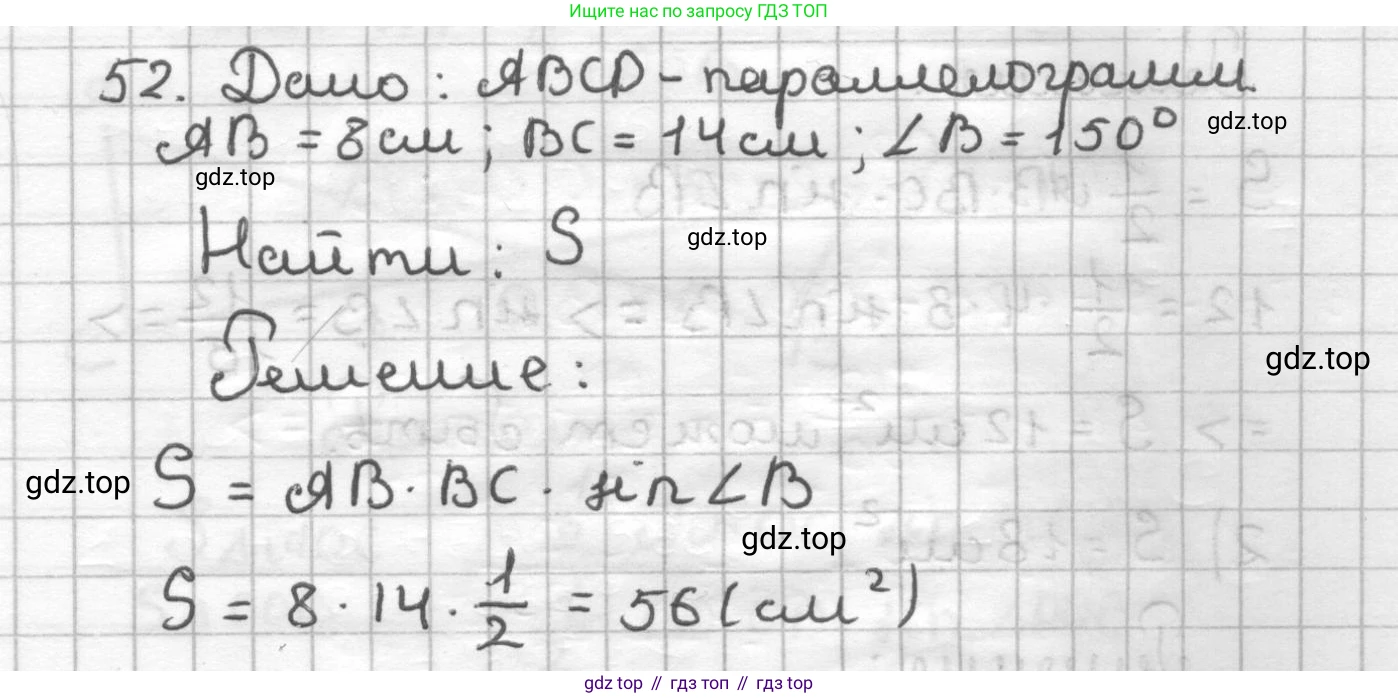 Ищите нас по запросу ГДЗ ТОП
52. Дано: ABCD - параллелограмм.
AB = 8см; BC = 14см; ∠B = 150°
gdz.top
gdz.top
Найти: S
gdz.top
Решение:
gdz.top
S = AB · BC · sin∠B
gdz.top
gdz.top
S = 8 · 14 · 1/2 = 56 (см²)
gdz top // гдз топ // gdz top